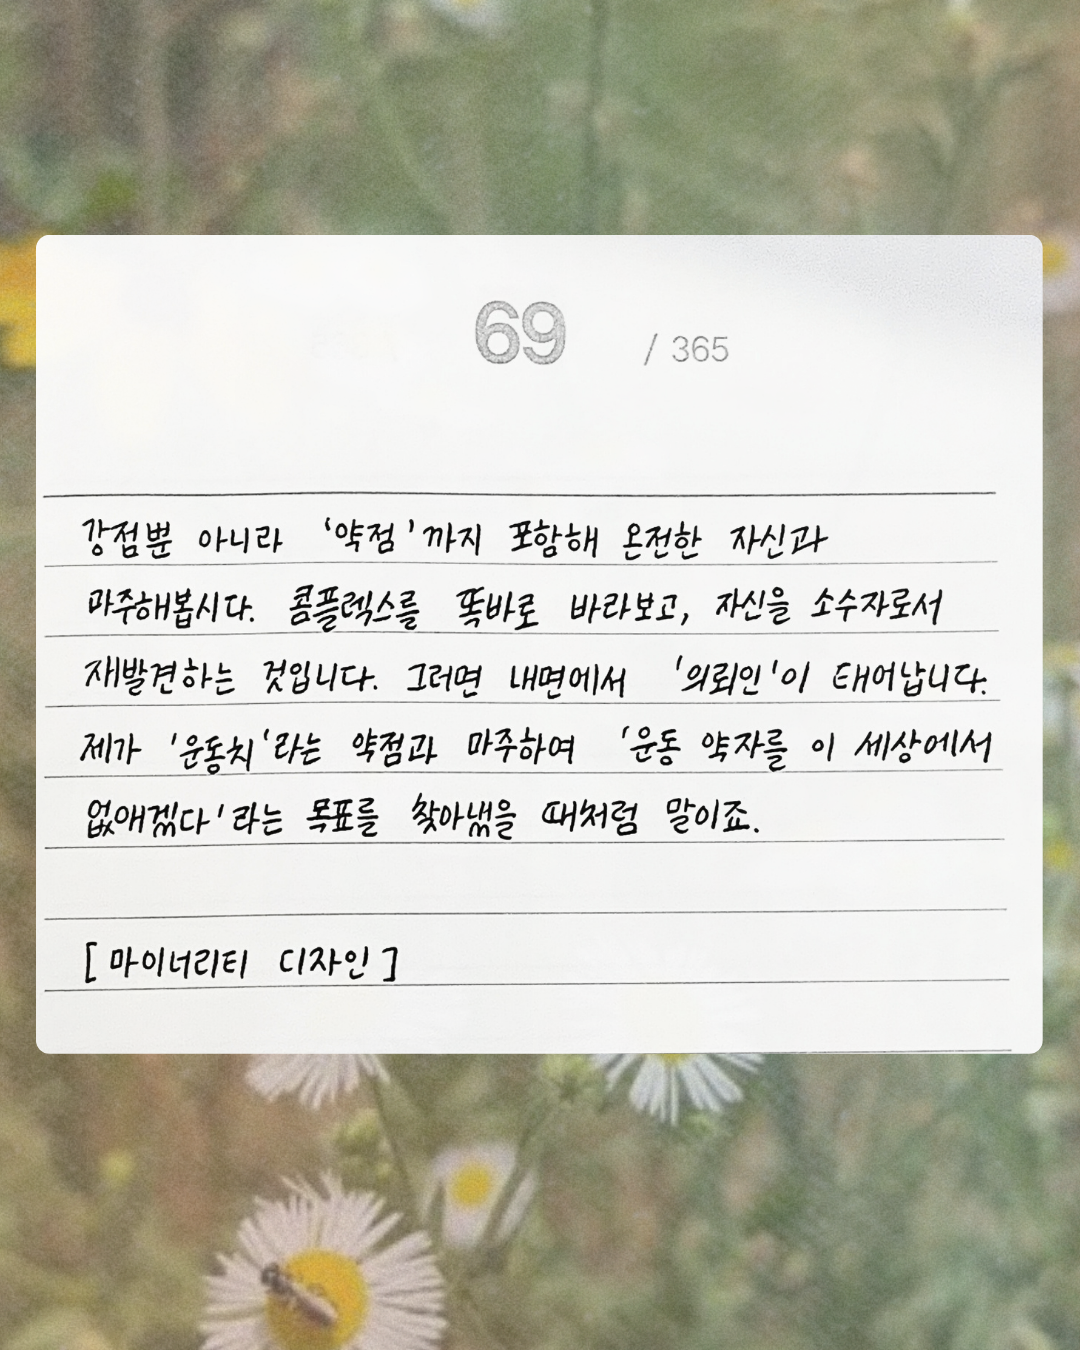 69 / 365
강점뿐 아니라 '약점'까지 포함해 온전한 자신과
마주해봅시다. 콤플렉스를 똑바로 바라보고, 자신을 소수자로서
재발견하는 것입니다. 그러면 내면에서 '의뢰인'이 태어납니다.
제가 '운동치'라는 약점과 마주하여 '운동 약자를 이 세상에서
없애겠다'라는 목표를 찾아냈을 때처럼 말이죠.
[마이너리티 디자인]